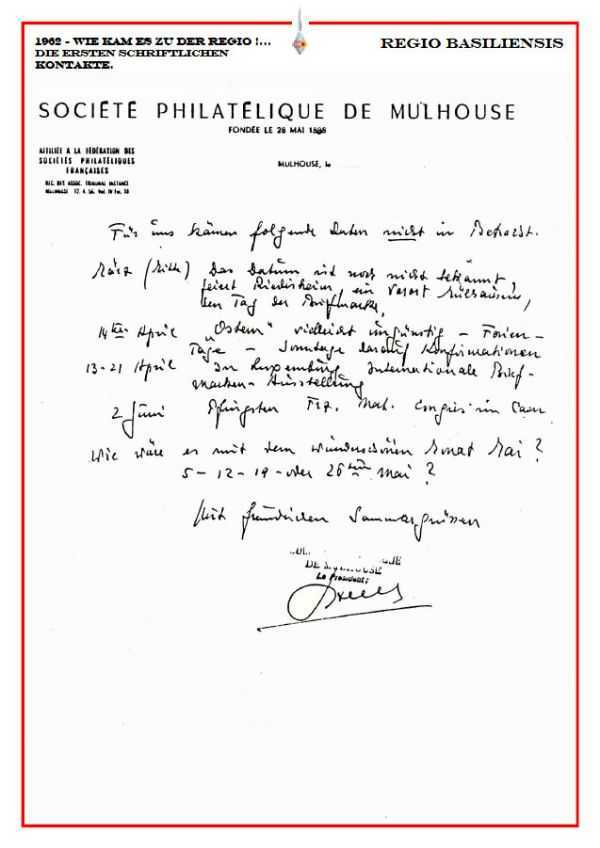 1962 - WIE KAM ES ZU DER REGIO !...
DIE ERSTEN SCHRIFTLICHEN
KONTAKTE.
REGIO BASILIENSIS
SOCIÉTÉ PHILATÉLIQUE DE MULHOUSE
FONDÉE LE 28 MAI 1898
AFFILIÉE A LA FÉDÉRATION DES
SOCIÉTÉS PHILATÉLIQUES
FRANÇAISES
REG. DES ASSOC. TRIBUNAL INSTANCE
MULHOUSE 17. 4. 56. Vol. IV Fol. 58
MULHOUSE, le
Für uns kämen folgende Daten nicht in Betracht.
März (Mitte) Das Datum ist noch nicht bekannt,
feiert Riedisheim, ein Vorort Mülhausens,
den Tag der Briefmarke,
14ter April "Ostern" vielleicht ungünstig - Ferien-
Tage - Sonntage darauf Konfirmationen
13-21 April In Luxemburg Internationale Brief-
marken-Ausstellung
2 Juni Pfingsten Frz. Nat. Congrès in Caen
Wie wäre es mit dem wunderschönen Monat Mai ?
5-12-19-oder 26ten Mai ?
Mit freundlichen Sammlergrüssen
DE MULHOUSE
Le Président